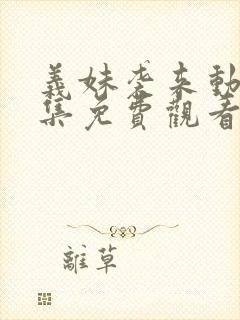 義妹袭来動
集免費觀看
離草